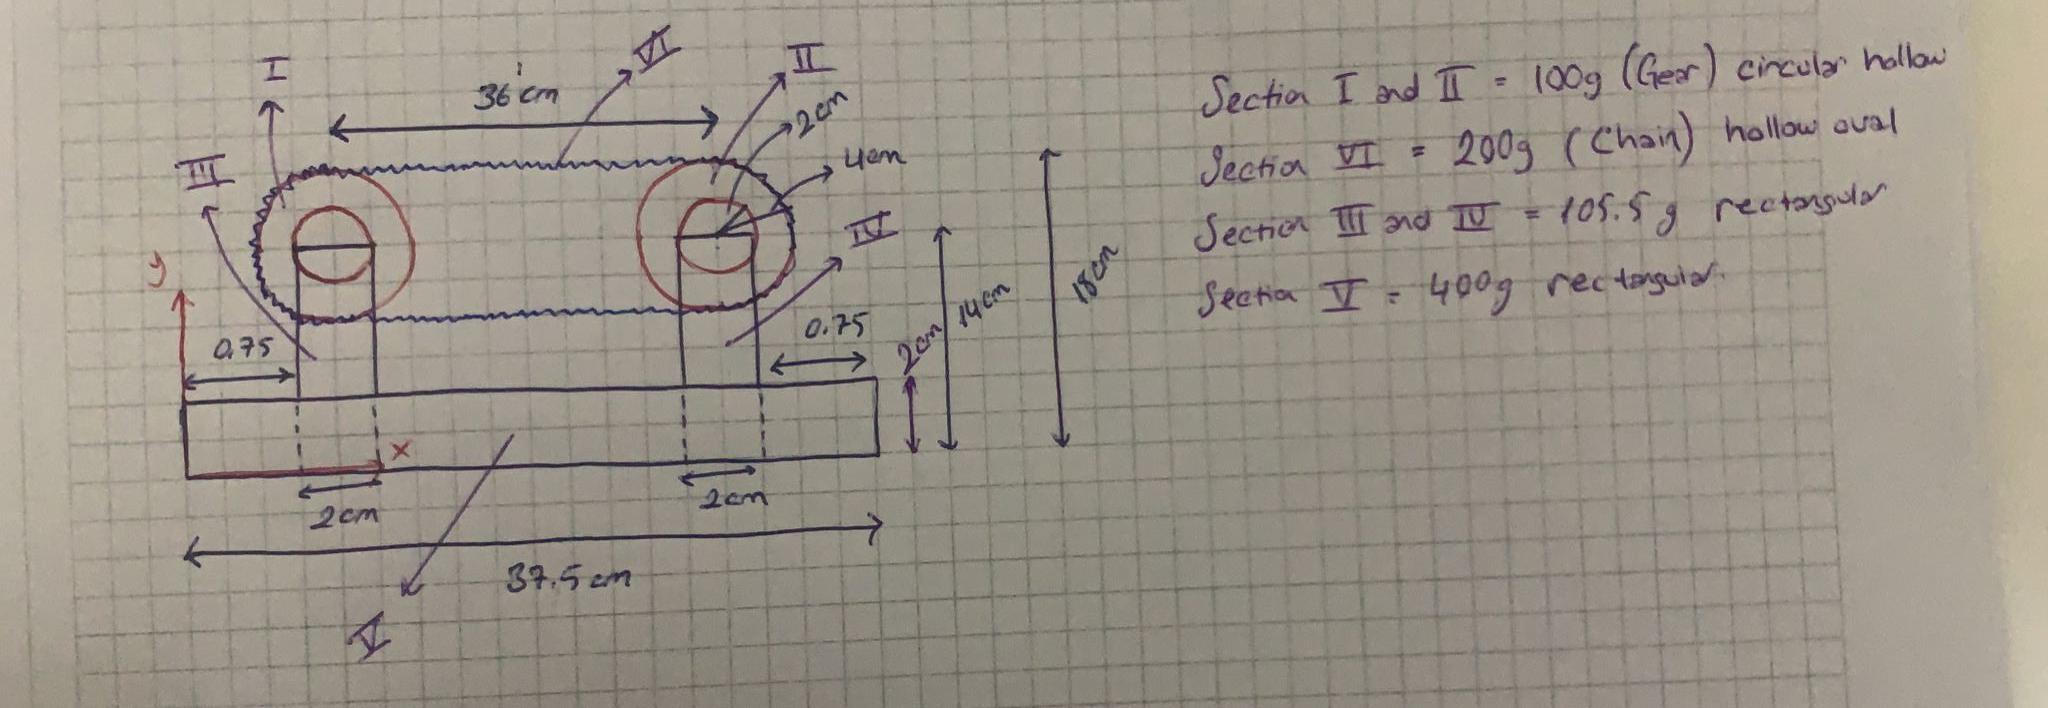 I
VI
II
36 cm
2cm
4cm
III
IV
y
0.75
0.75
2cm
14cm
18cm
x
2cm
2cm
37.5 cm
V
Section I and II = 100g (Gear) circular hollow
Section VI = 200g (Chain) hollow oval
Section III and IV = 105.5 g rectangular
Section V = 400g rectangular